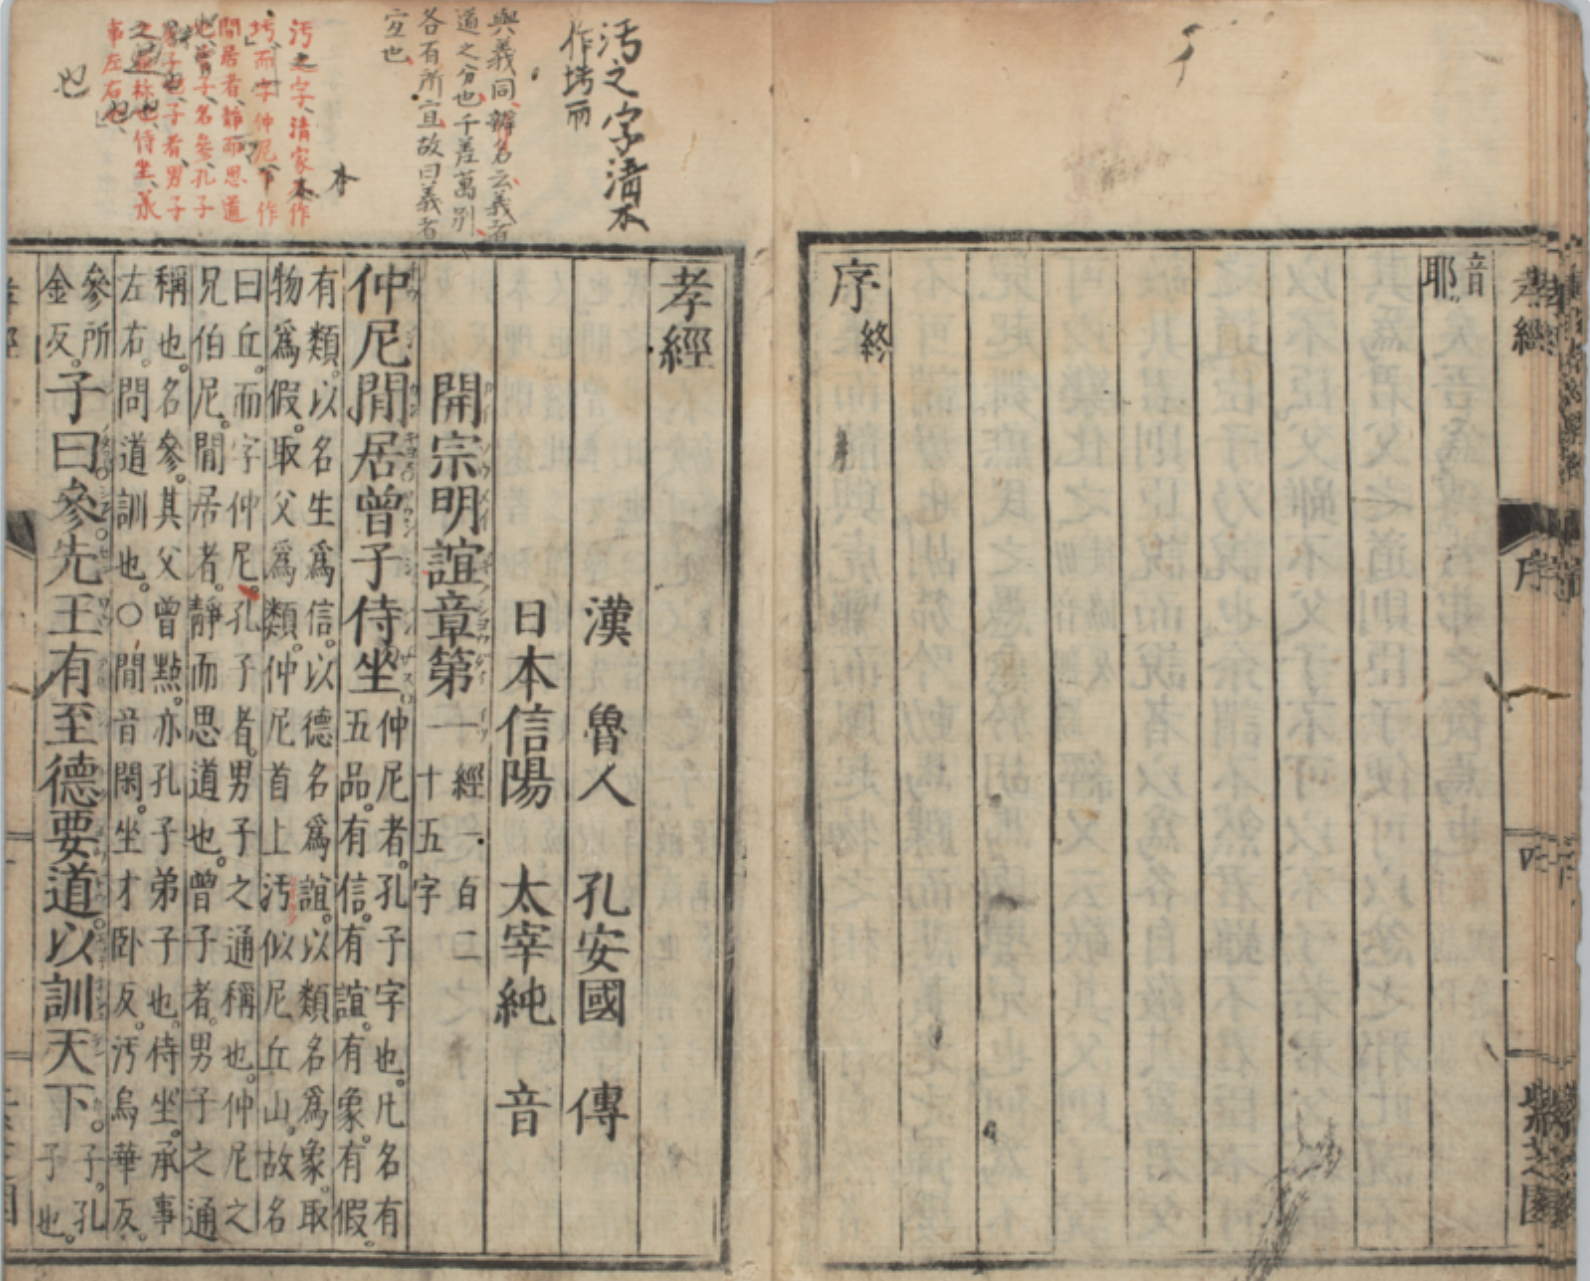 音
耶。
序終
孝經
漢 魯人 孔安國 傳
日本信陽 太宰純 音
開宗明誼章第一 經一百二
十五字
仲尼閒居曾子侍坐
仲尼者。孔子字也。凡名有
五品。有信。有誼。有象。有假。
有類。以名生爲信。以德名爲誼。以類名爲象。取
物爲假。取父爲類。仲尼首上汚似尼丘山。故名
曰丘。而字仲尼。孔子者。男子之通稱也。仲尼之
兄伯尼。閒居者。靜而思道也。曾子者。男子之通
稱也。名參。其父曾點。亦孔子弟子也。侍坐。承事
左右。問道訓也。○閒音閑。坐才卧反。汚烏華反。
參所
金反。
子曰參。先王有至德要道。以訓天下。
子。孔
子也。
汚之字清本
作垮而
與義同、辨名云義者
道之分也千差萬別、
各有所宜故曰義者
宜也
本
汚之字、清家本作
垮、而字仲尼、下作
閒居者、靜而思道
也、曾子、名參、孔子
男子
之通称也、侍坐、承
事左右也
也
孝經
序
四
紫芝園